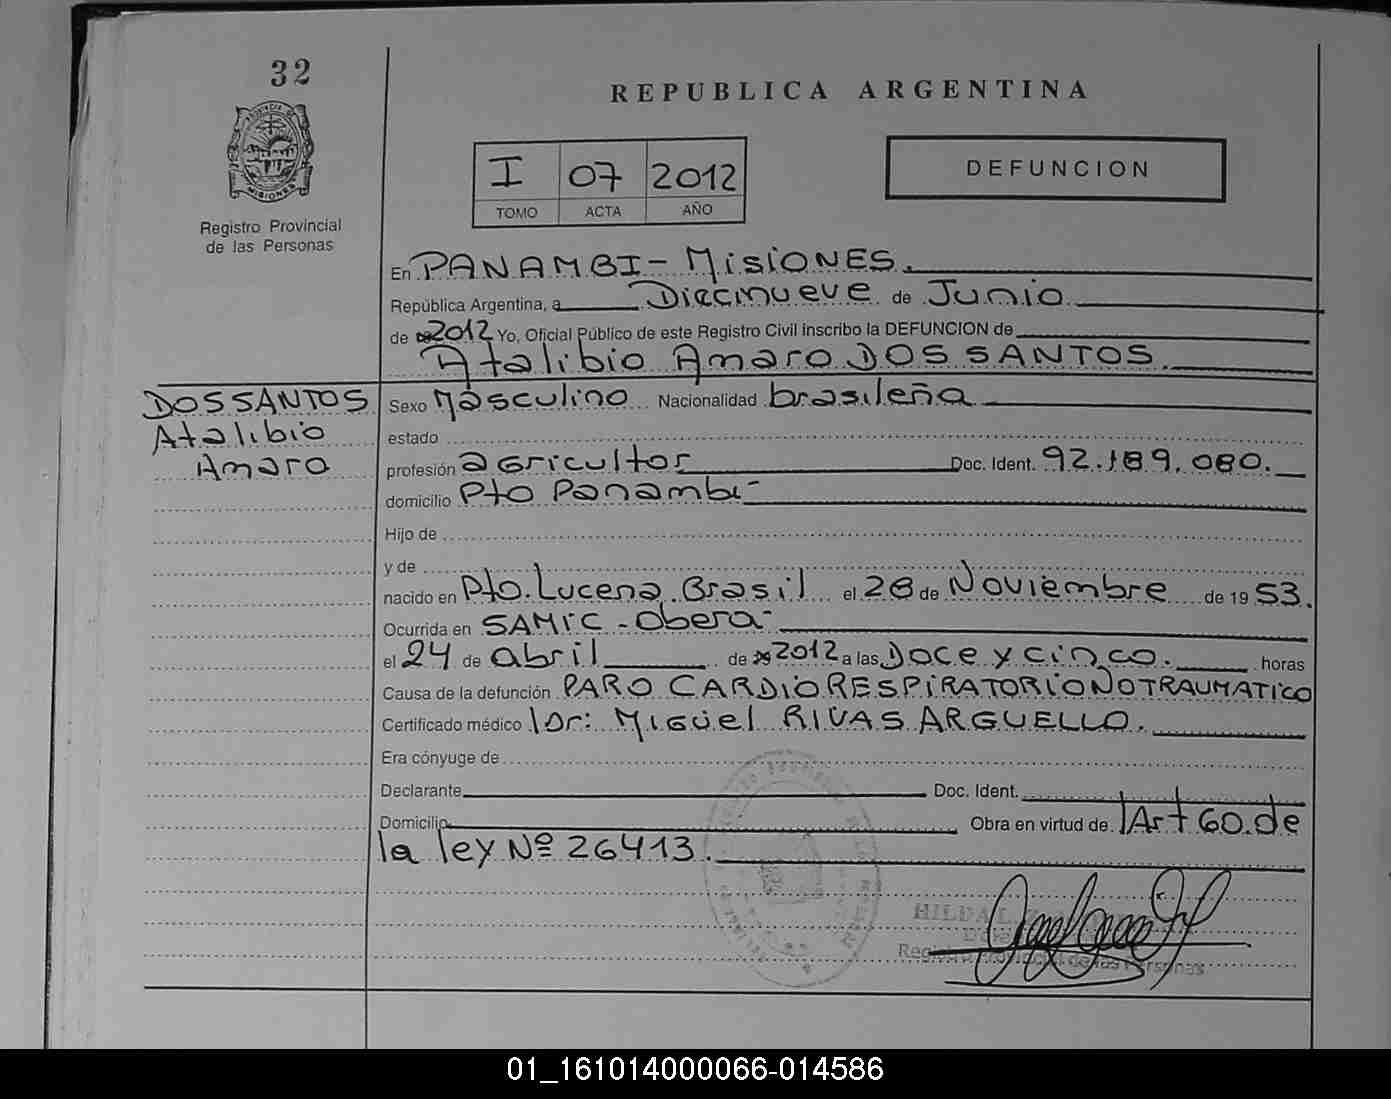 32
REPUBLICA ARGENTINA
I 07 2012
TOMO ACTA AÑO
DEFUNCION
PROVINCIA DE
MISIONES
Registro Provincial
de las Personas
En PANAMBI - MISIONES.
República Argentina, a Diecinueve de Junio
de 2012 Yo, Oficial Público de este Registro Civil inscribo la DEFUNCION de
Atalibio Amaro DOS SANTOS
DOS SANTOS
Atalibio
Amaro
Sexo Masculino Nacionalidad brasileña
estado
profesión agricultor Doc. Ident. 92.189.080.
domicilio Pto Panambi
Hijo de
y de
nacido en Pto. Lucena. Brasil el 28 de Noviembre de 19 53.
Ocurrida en SAMIC - Obera
el 24 de abril de 2012 a las Doce y cinco. horas
Causa de la defunción PARO CARDIORESPIRATORIO NO TRAUMATICO
Certificado médico Dr: Miguel RIVAS ARGUELLO.
Era cónyuge de
Declarante Doc. Ident.
Domicilio Obra en virtud de Art 60. de
la ley Nº 26413.
HILDA L.
Registro Provincial de las Personas
01_161014000066-014586